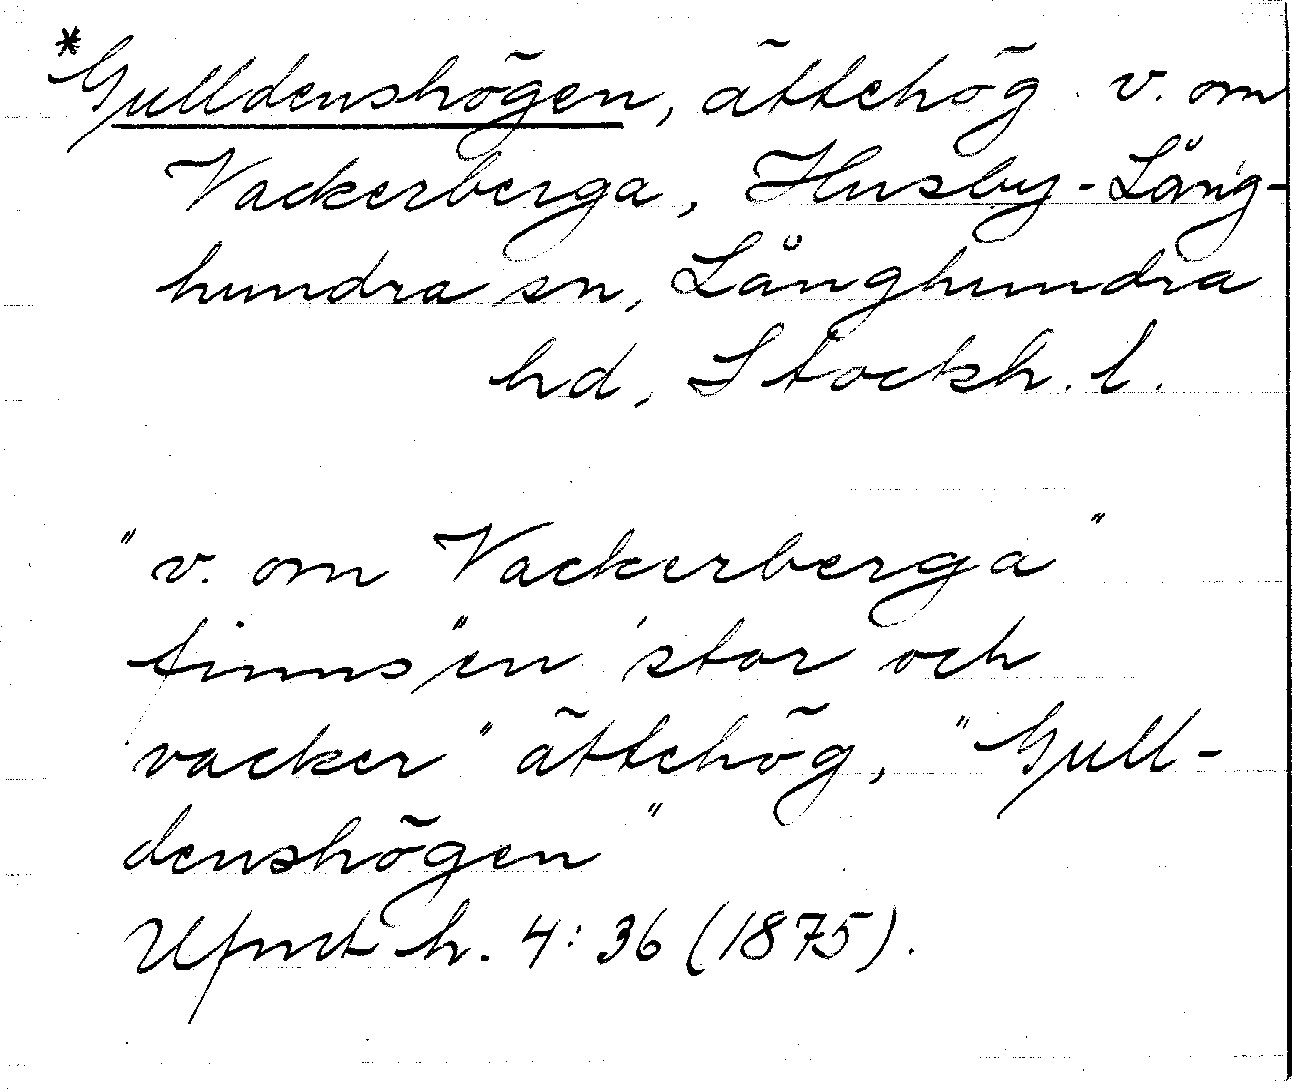 *Gulldenshögen, ättehög v. om
Vackerberga, Husby-Lång-
hundra sn, Långhundra
hd, Stockh. l.
"v. om Vackerberga"
finns "en stor och
vacker" ättehög, "Gull-
denshögen"
Ufmt h. 4:36 (1875).